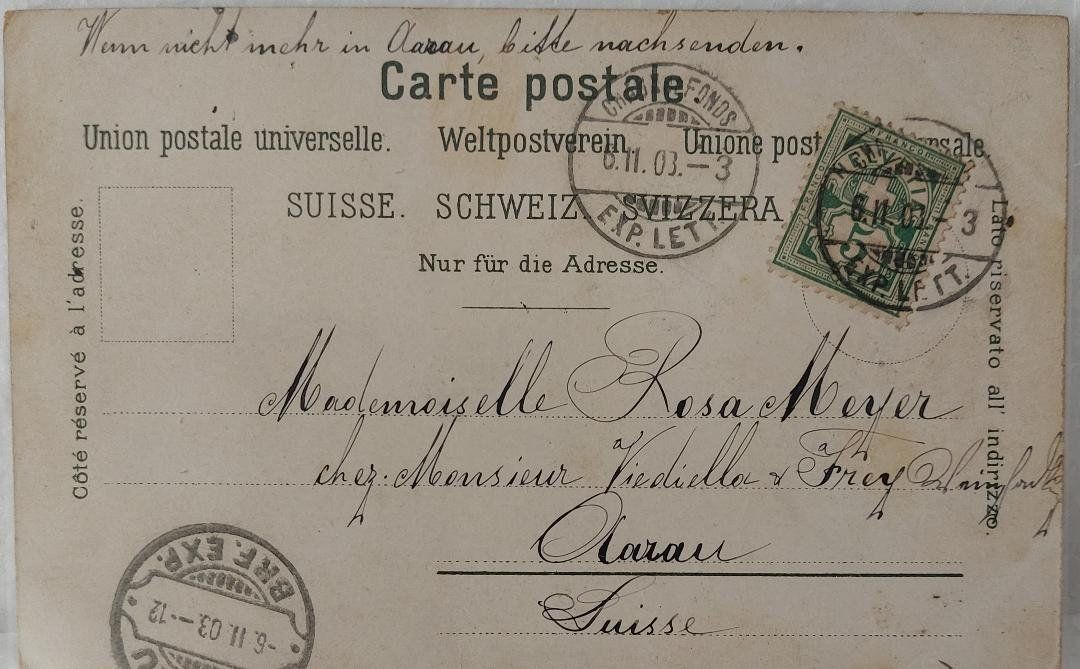 Wenn nicht mehr in Aarau, bitte nachsenden.
Carte postale
Union postale universelle. Weltpostverein. Unione post
SUISSE. SCHWEIZ. SVIZZERA
Nur für die Adresse.
Côté réservé à l'adresse.
Lato riservato all' indirizzo.
FONDS
6.11.03.–3
EXP. LETT.
HELVETIA
FRANCO
5
6.11.03.–3
EXP. LETT.
Mademoiselle Rosa Meyer
chez Monsieur Viediella & Frey
Aarau
Suisse
BRF. EXP.
-6.11.03.–12